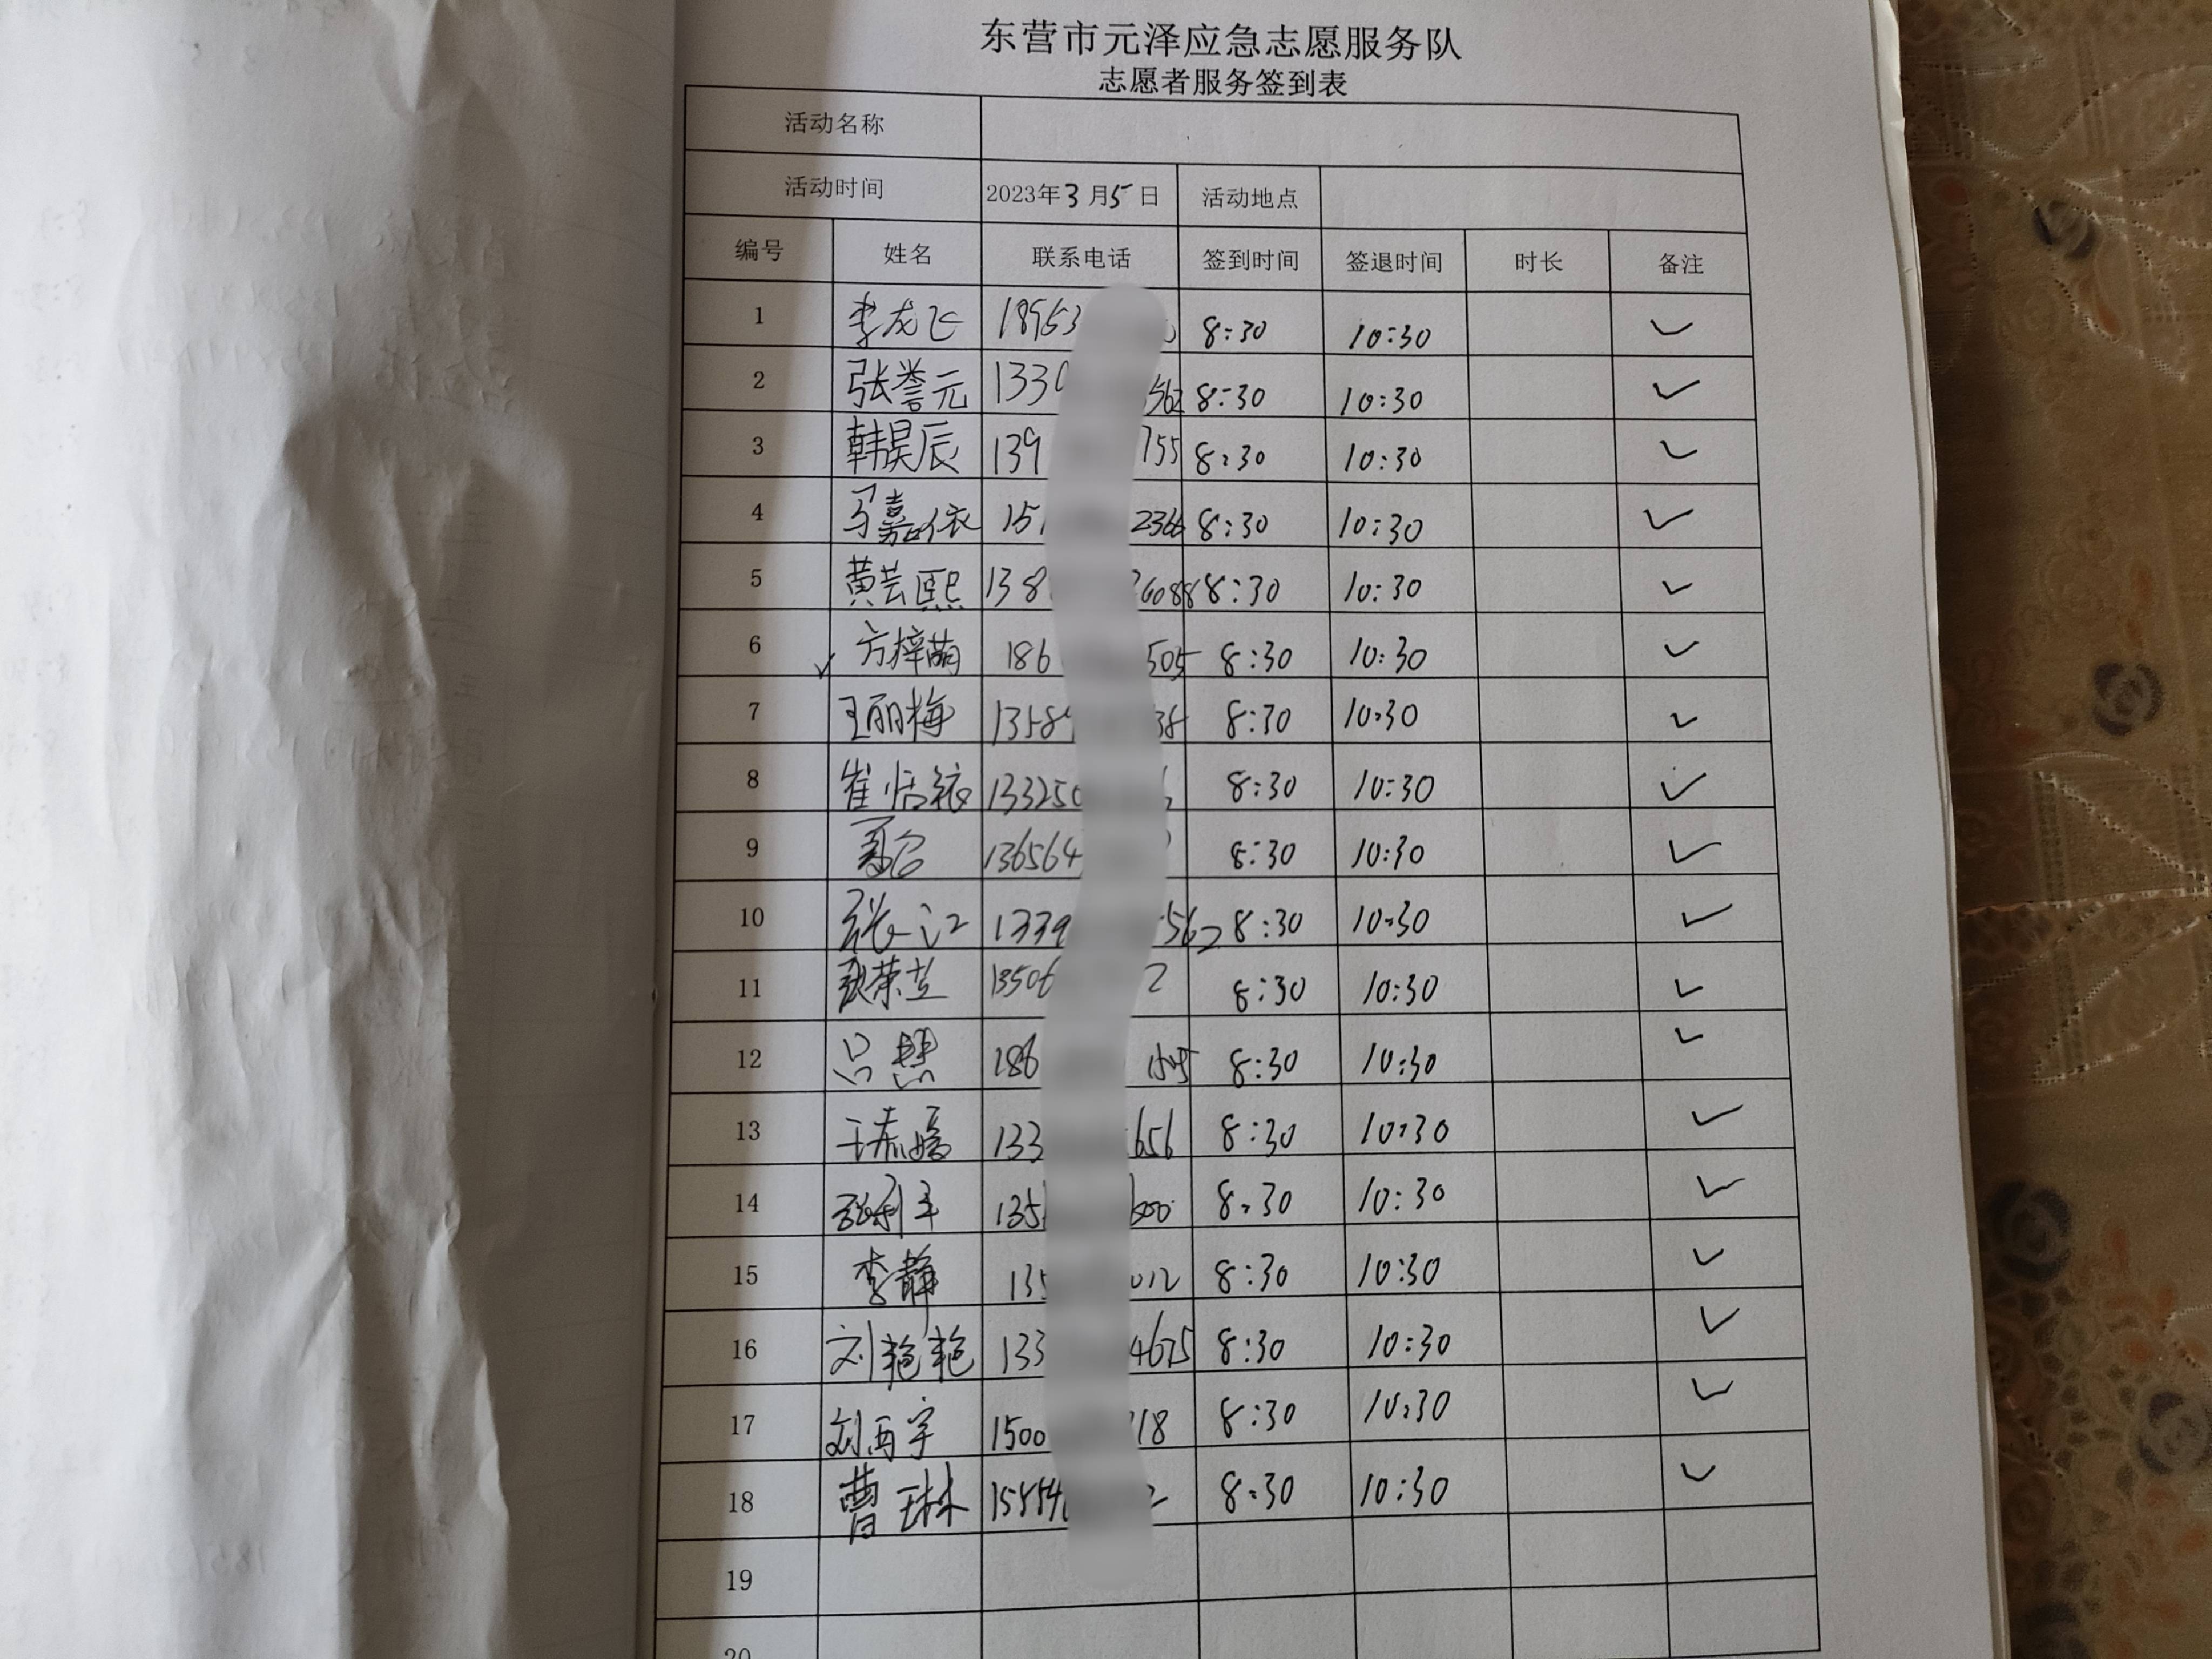 东营市元泽应急志愿服务队
志愿者服务签到表
活动名称
活动时间 2023年3月5日 活动地点
编号 姓名 联系电话 签到时间 签退时间 时长 备注
1 李龙飞 18953 8:30 10:30 ✓
2 张誉元 1330 562 8:30 10:30 ✓
3 韩昊辰 139 755 8:30 10:30 ✓
4 马嘉依 151 2366 8:30 10:30 ✓
5 黄芸熙 138 6088 8:30 10:30 ✓
6 ✓ 方梓萌 186 505 8:30 10:30 ✓
7 王丽梅 1358 38 8:30 10:30 ✓
8 崔恬 133250 8:30 10:30 ✓
9 136564 8:30 10:30 ✓
10 张江 1339 562 8:30 10:30 ✓
11 荣 13506 2 8:30 10:30 ✓
12 吕慧 186 1505 8:30 10:30 ✓
13 王 133 656 8:30 10:30 ✓
14 张利 135 000 8:30 10:30 ✓
15 李静 135 012 8:30 10:30 ✓
16 刘艳艳 133 4675 8:30 10:30 ✓
17 刘雨宇 1500 118 8:30 10:30 ✓
18 曹琳 15854 2 8:30 10:30 ✓
19
20